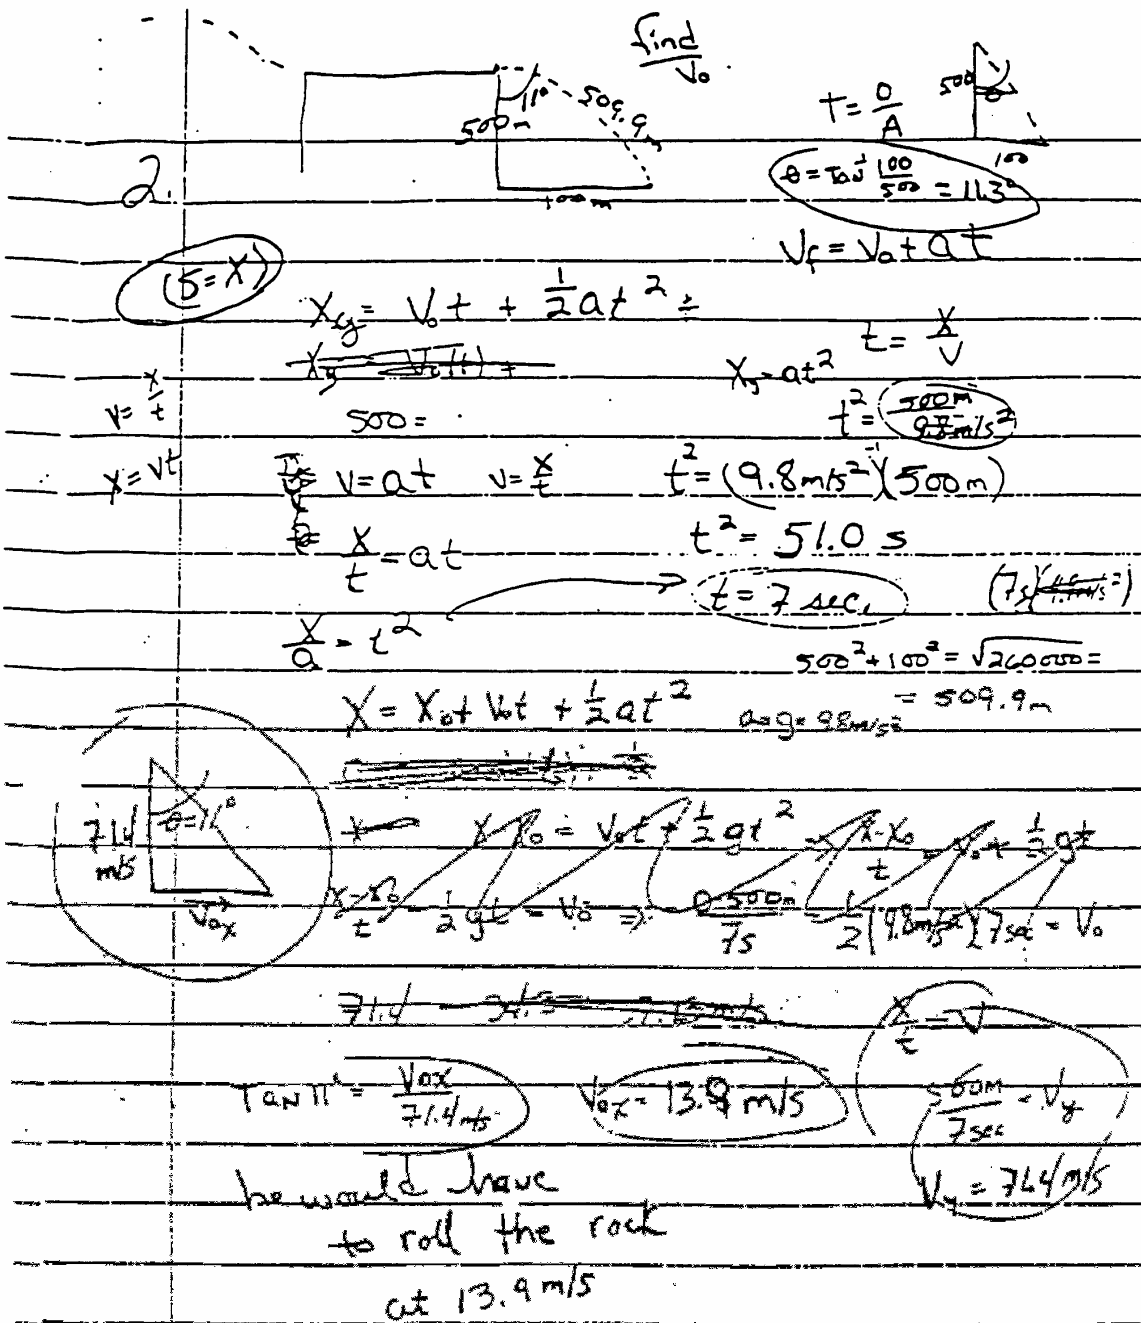 find
V₀
11°
509.9m
500m
100m
T = O/A
500
θ
100
θ = Tan⁻¹ 100/500 = 11.3°
2.
Vf = V₀ + at
(S = X)
Xy = V₀t + ½at² =
t = X/V
Xy = at²
V = X/t
500 =
t² = 500m / 9.8m/s²
X = Vt
V = at V = X/t
t² = (9.8m/s²)⁻¹(500m)
X/t = at
t² = 51.0 s
t = 7 sec.
(7s)
X/a = t²
500² + 100² = √260000 =
= 509.9m
X = X₀ + V₀t + ½at²
a = g = 9.8m/s²
71.4 m/s
θ = 11°
V₀x
X - X₀ = V₀t + ½gt² ⇒ X-X₀/t = V₀ + ½gt
X-X₀/t - ½gt = V₀ ⇒ 0-500m/7s - ½(9.8m/s²)(7sec) = V₀
71.4
X/t = V
Tan 11° = V₀x / 71.4 m/s
V₀x = 13.9 m/s
500m/7sec = Vy
Vy = 71.4 m/s
he would have
to roll the rock
at 13.9 m/s